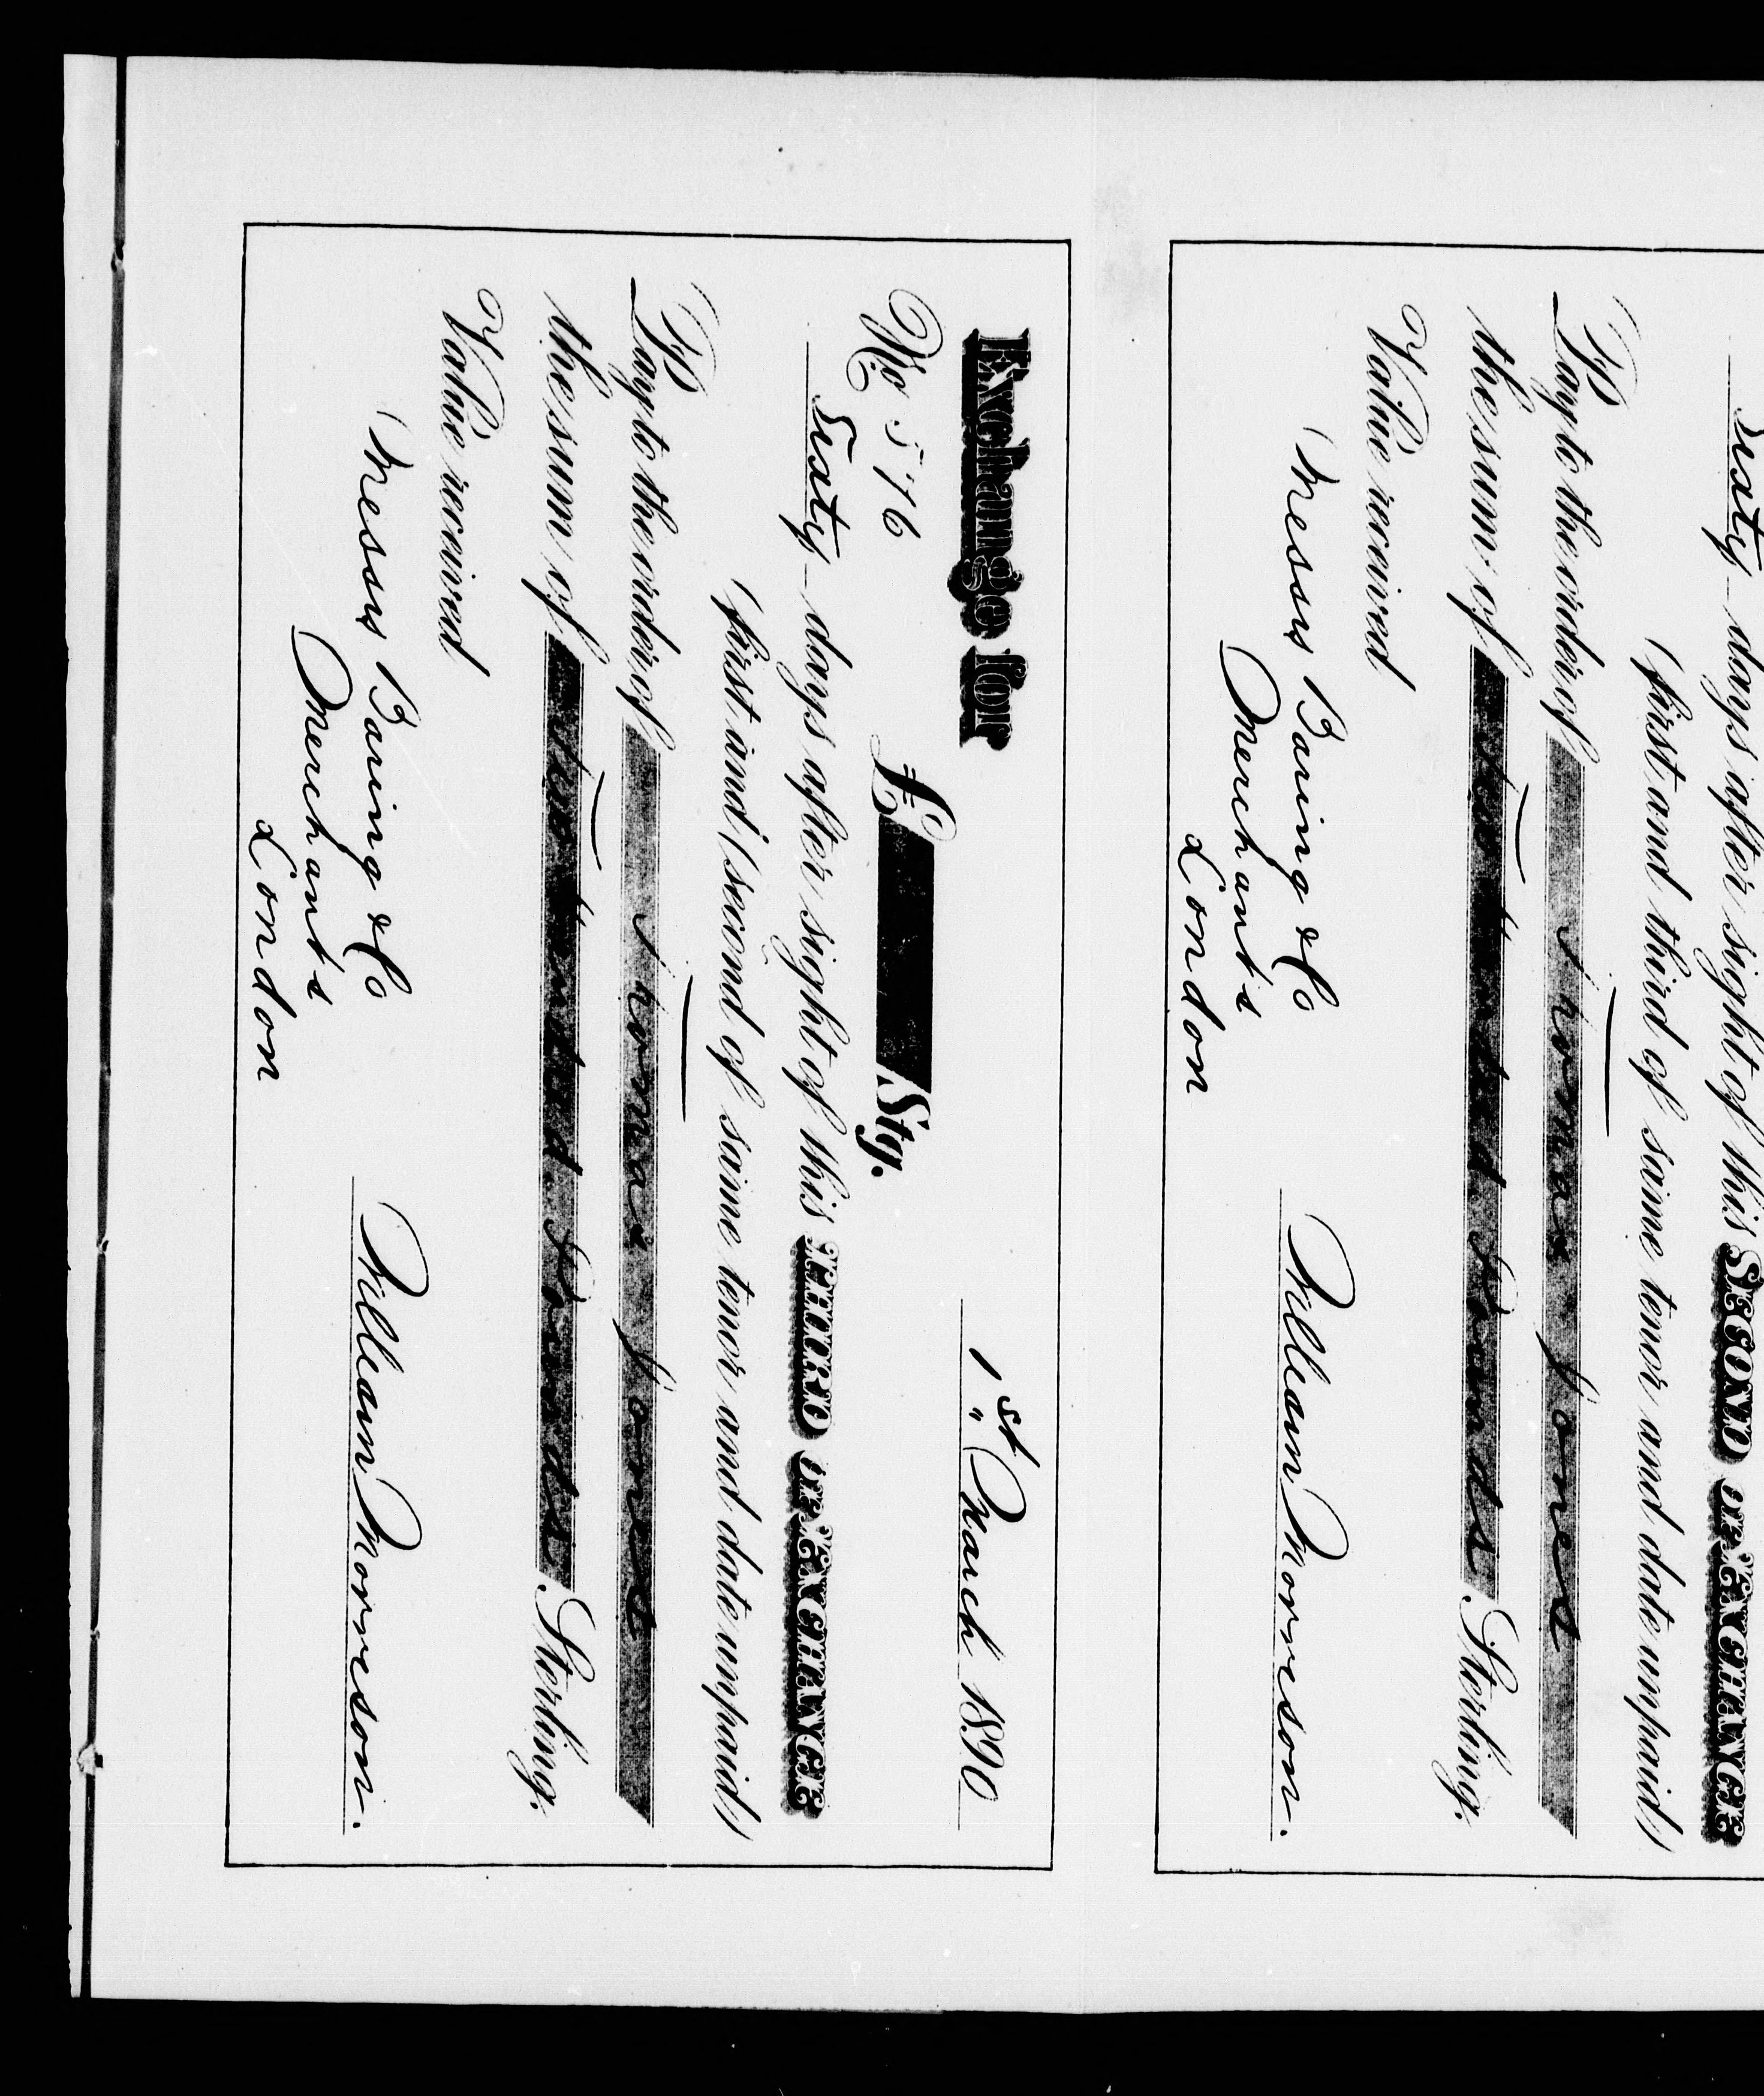 Sixty – days after sight of this SECOND OF EXCHANGE
(first and third of same tenor and date unpaid)
Pay to the order of Thomas Jones
the sum of Two Hundred Pounds Sterling.
Value received
Messrs Baring & Co William Morrison.
Merchants
London
Exchange for 1st March 1890
No 576 £ Stg.
Sixty – days after sight of this THIRD OF EXCHANGE
(first and second of same tenor and date unpaid)
Pay to the order of Thomas Jones
the sum of Two Hundred Pounds Sterling.
Value received
Messrs Baring & Co William Morrison.
Merchants
London